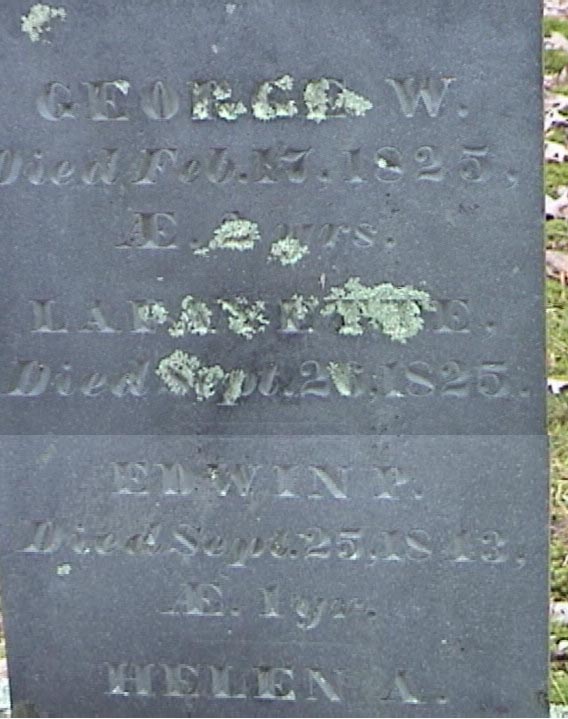 GEORGE W.
Died Feb. 17, 1825,
Æ. 2 yrs.
LAFAYETTE.
Died Sept. 26, 1825.
EDWIN P.
Died Sept. 25, 1843,
Æ. 1 yr.
HELEN A.